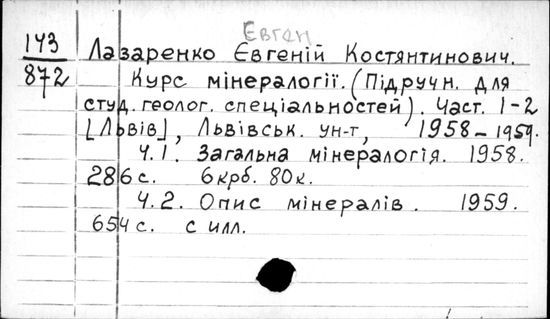 Евген
143
872
Лазаренко Євгеній Костянтинович.
Курс мінералогії. (Підручн. для
студ. геолог. спеціальностей). Част. 1-2
[Львів], Львівськ. ун-т, 1958-1959.
Ч.1. Загальна мінералогія. 1958.
286 с. 6крб. 80к.
Ч.2. Опис мінералів. 1959.
654 с. с илл.